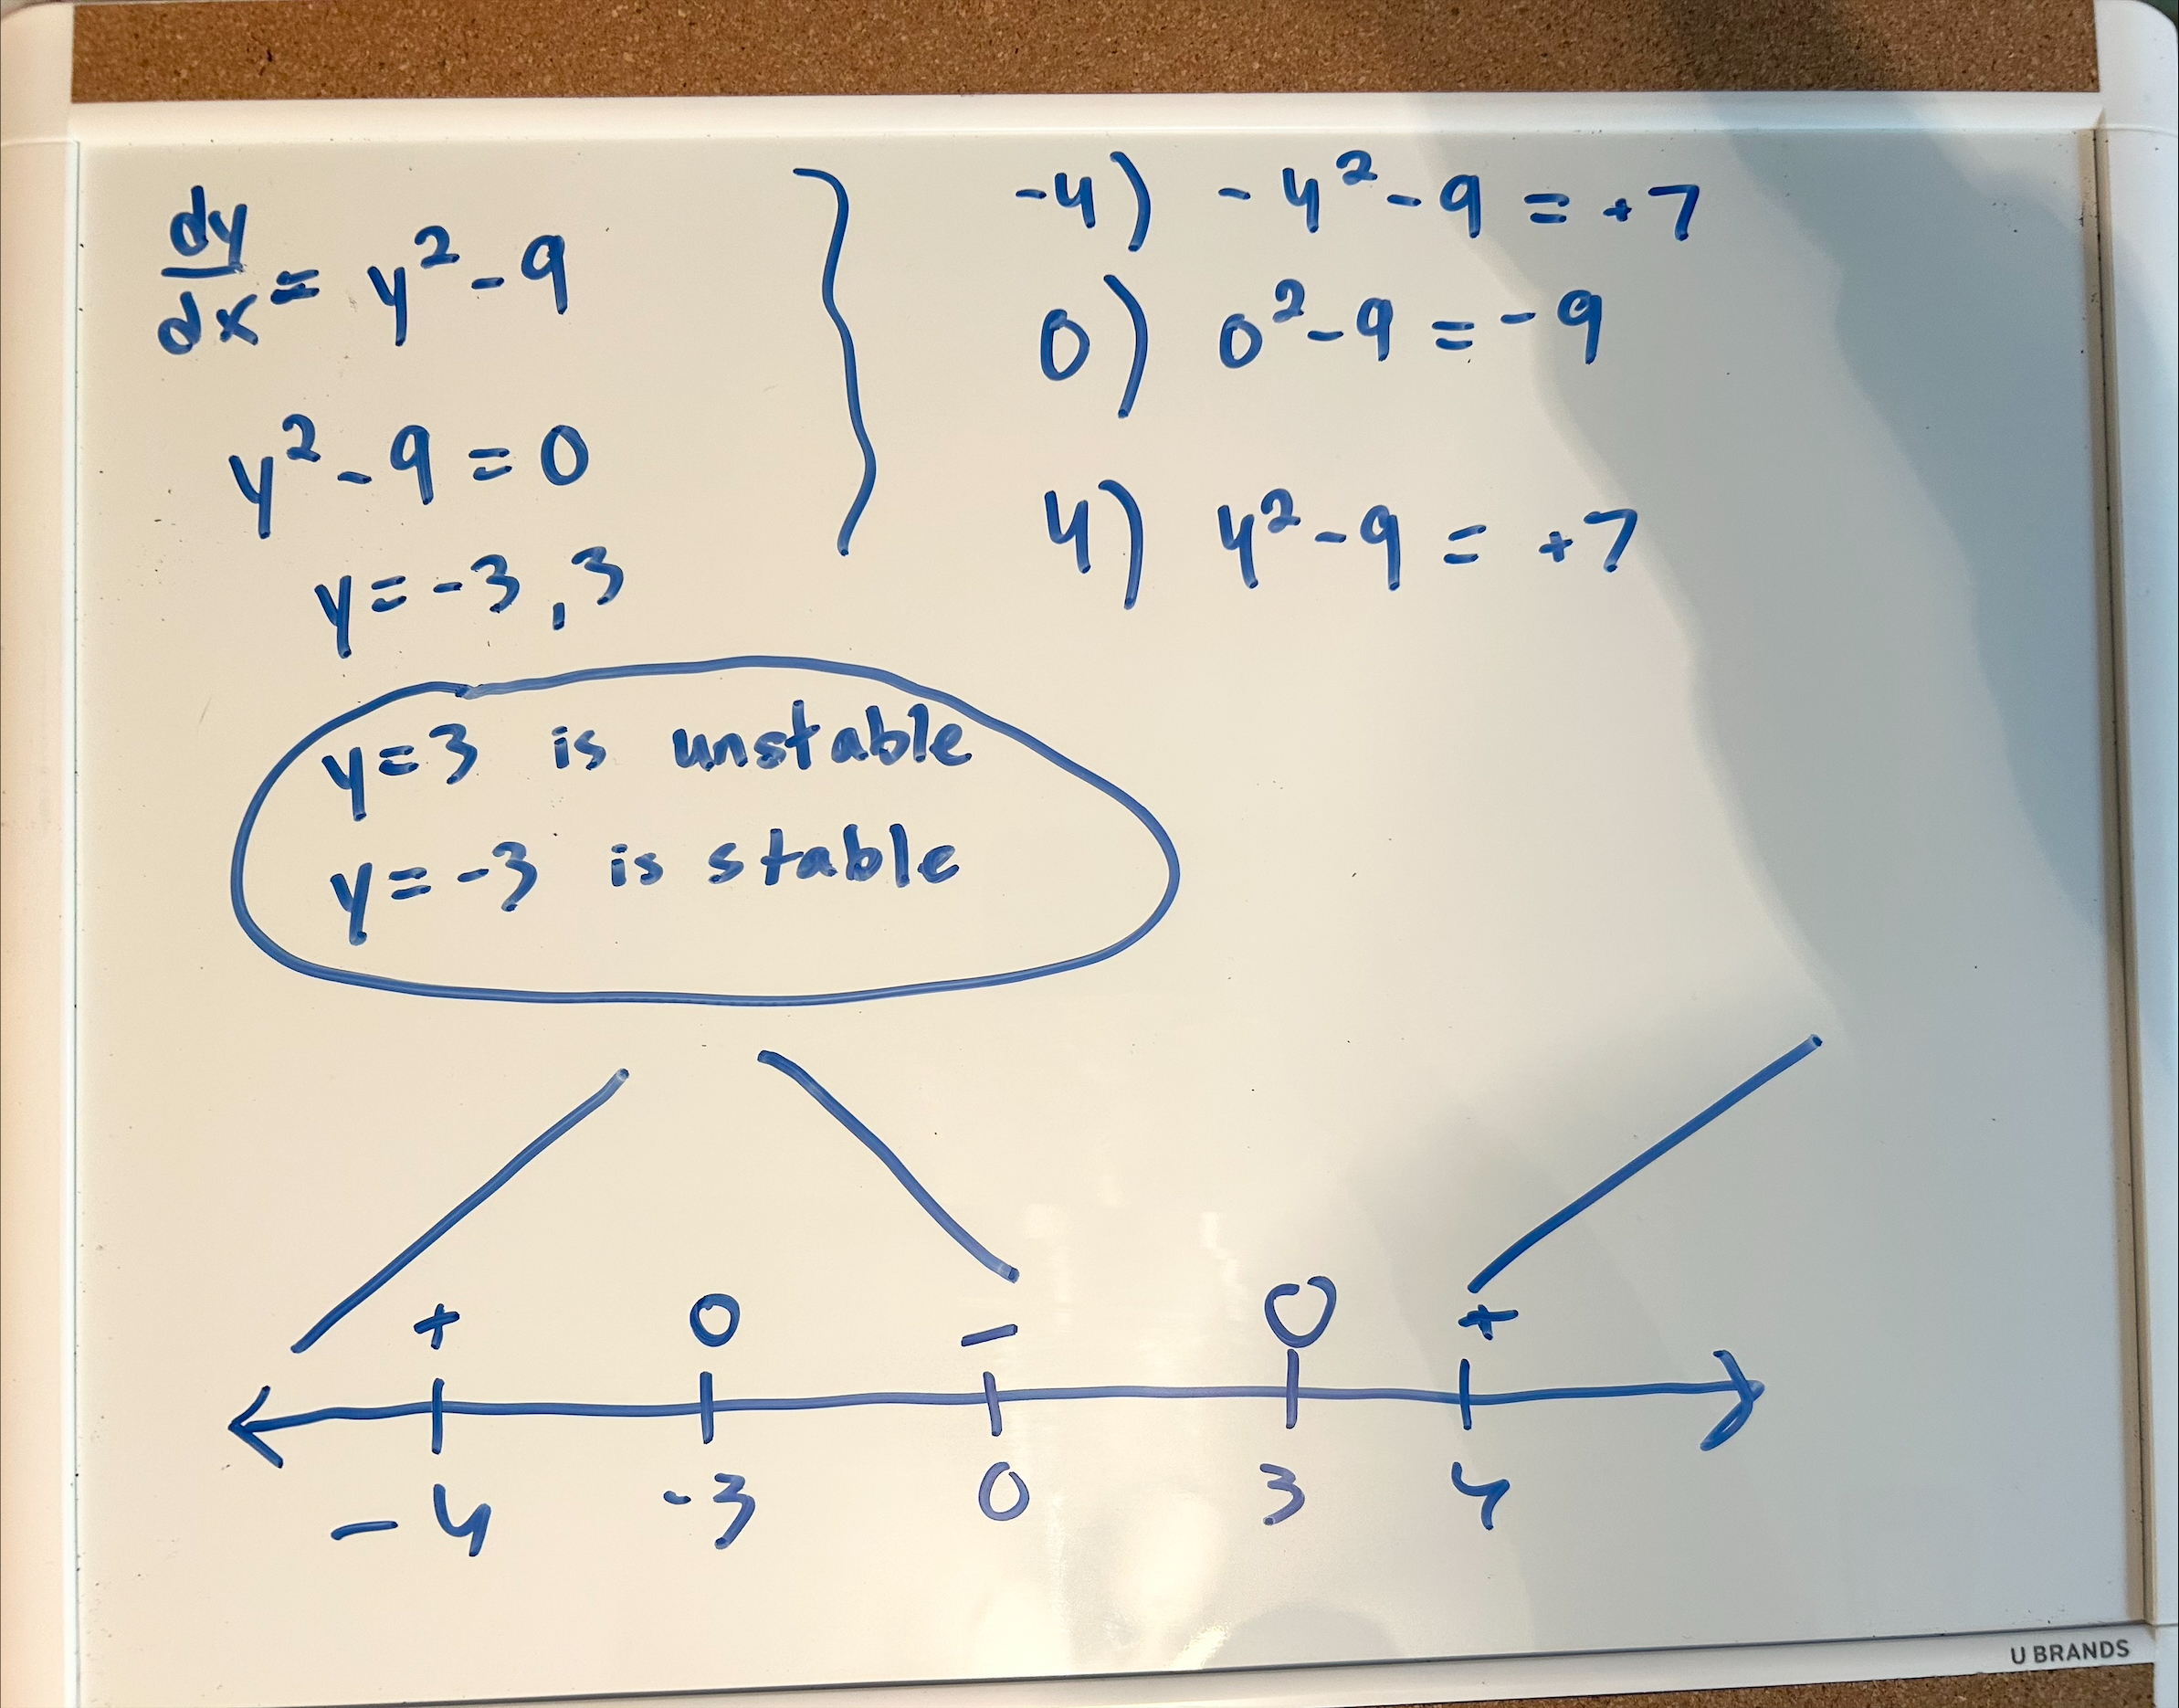 dy/dx = y² - 9
y² - 9 = 0
y = -3, 3
-4) -4² - 9 = +7
0) 0² - 9 = -9
4) 4² - 9 = +7
y = 3 is unstable
y = -3 is stable
+ 0 - 0 +
-4 -3 0 3 4
U BRANDS